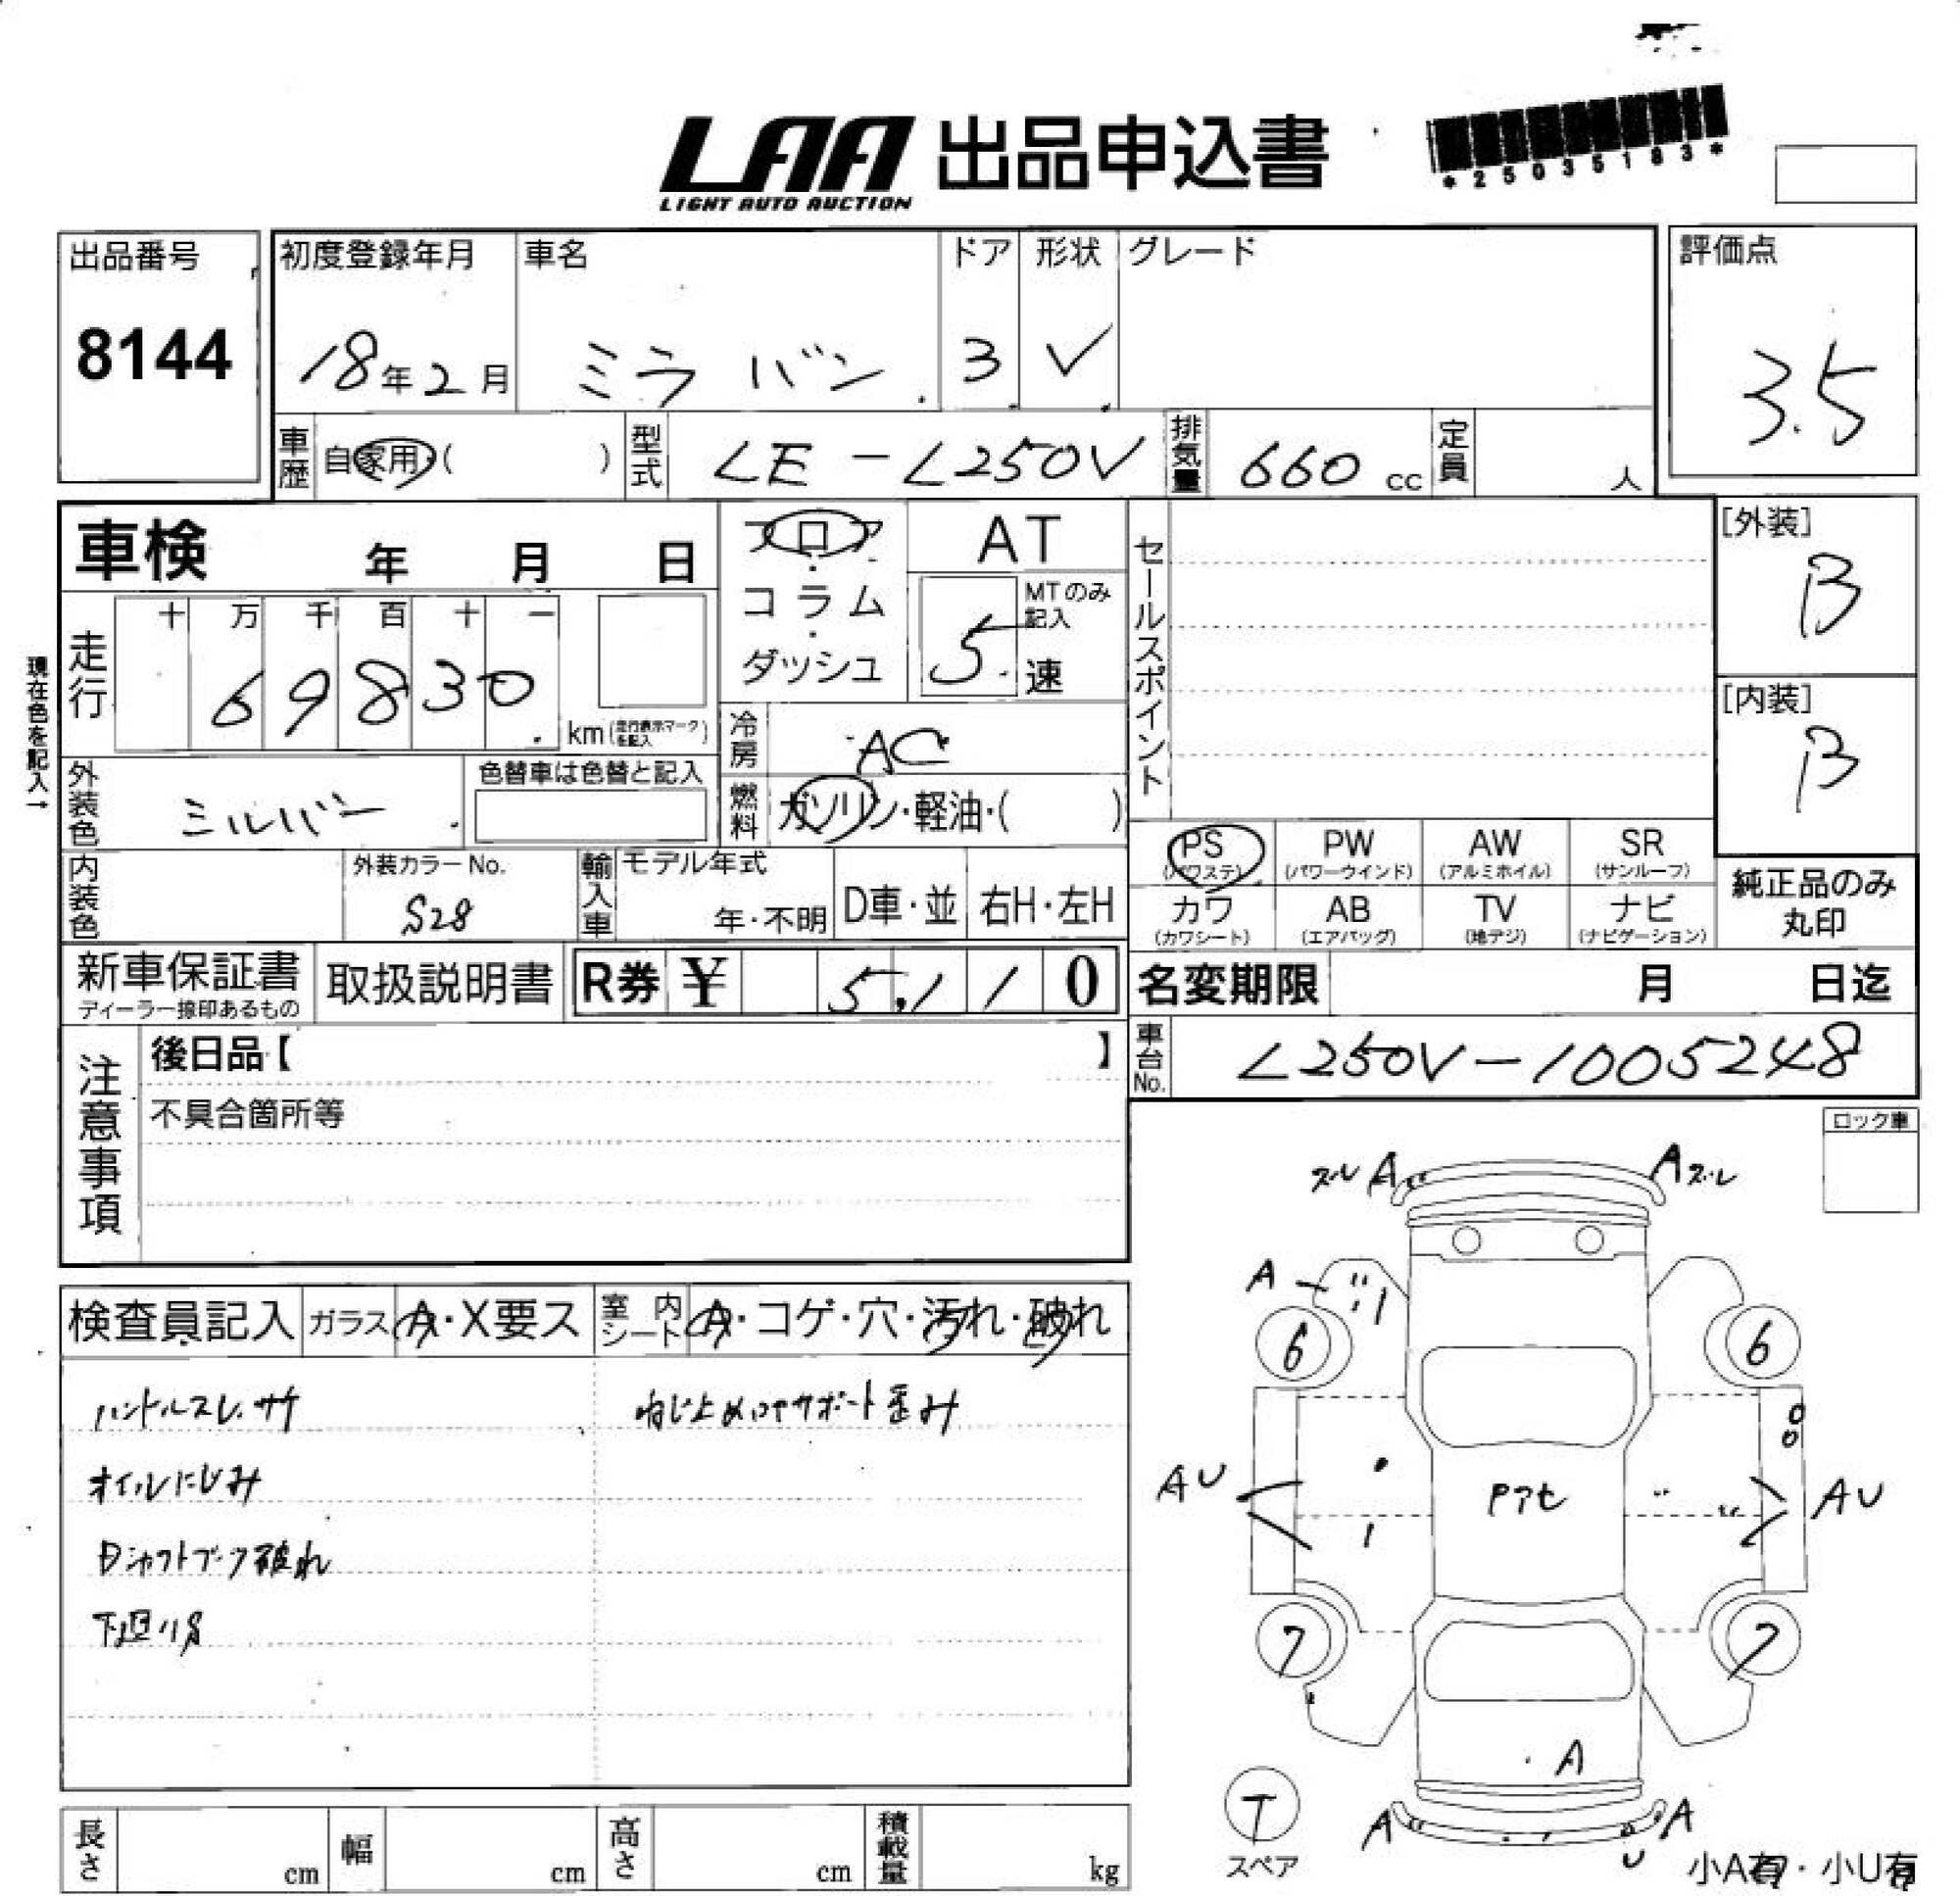 LAA 出品申込書
LIGHT AUTO AUCTION
*25035183*
出品番号
8144
初度登録年月
18年2月
車名
ミラ バン
ドア
3
形状
✓
グレード
評価点
3.5
車歴
自家用 ( )
型式
LE-L250V
排気量
660 cc
定員
人
車検 年 月 日
フロア・コラム・ダッシュ
AT
MTのみ記入
5 速
セールスポイント
[外装]
B
[内装]
B
現在色を記入→
走行
十 万 千 百 十 一
69830
km (走行表示マークを記入)
冷房
AC
燃料
ガソリン・軽油・( )
外装色
シルバー
色替車は色替と記入
内装色
外装カラーNo.
S28
輸入車
モデル年式
年・不明
D車・並
右H・左H
PS (パワステ)
PW (パワーウインド)
AW (アルミホイル)
SR (サンルーフ)
カワ (カワシート)
AB (エアバッグ)
TV (地デジ)
ナビ (ナビゲーション)
純正品のみ丸印
新車保証書
ディーラー捺印あるもの
取扱説明書
R券 ¥ 5,110
名変期限 月 日迄
車台No.
L250V-1005248
注意事項
後日品【 】
不具合箇所等
ロック車
検査員記入
ガラス A・X要ス
室内シート A・コゲ・穴・汚れ・破れ
ハンドルスレ、サケ
ねじ止めロアサポート歪み
オイルにじみ
Dシャフトブーツ破れ
下廻りS
スレ A
A スレ
A
6
6
AU
Pアセ
AU
7
7
A
T
スペア
A
A
U
小A有・小U有
長さ cm
幅 cm
高さ cm
積載量 kg